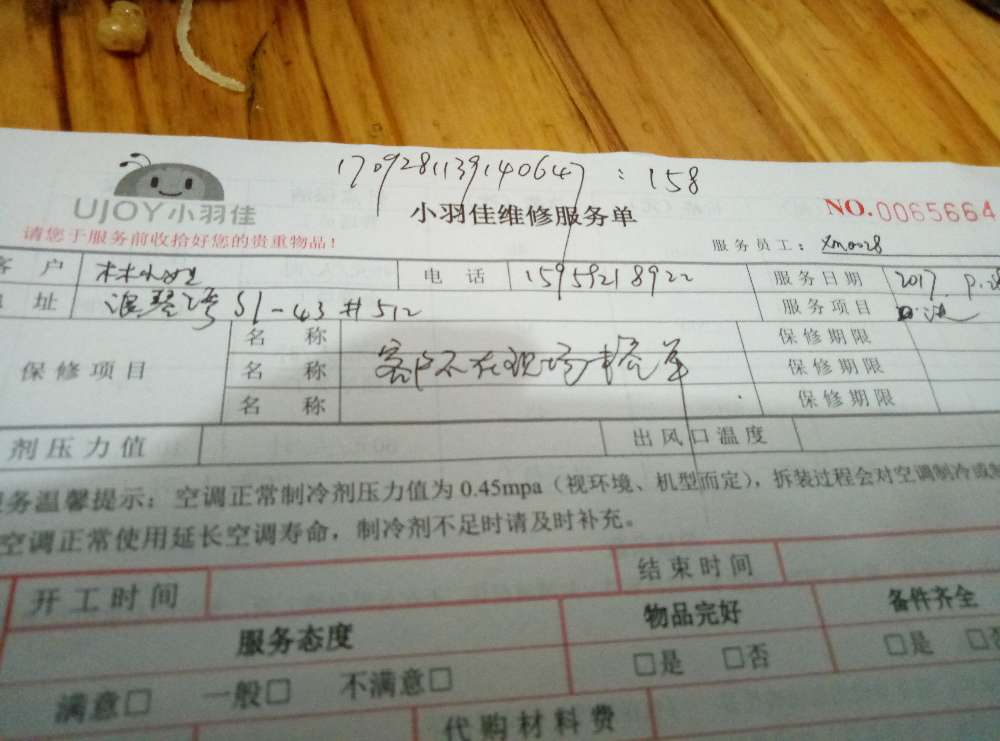 1709281139140647:158
UJOY小羽佳
小羽佳维修服务单
NO.0065664
请您于服务前收拾好您的贵重物品!
服务员工: xm0028
客户 电话 15959218922 服务日期 2017.9.28
地址 S1-43#512 服务项目
保修项目
名称 保修期限
名称 客户不在现场 单 保修期限
名称 保修期限
剂压力值 出风口温度
服务温馨提示:空调正常制冷剂压力值为0.45mpa(视环境、机型而定),拆装过程会对空调制冷或
空调正常使用延长空调寿命,制冷剂不足时请及时补充。
开工时间 结束时间
服务态度 物品完好 备件齐全
满意□ 一般□ 不满意□ □是 □否 □是 □否
代购材料费